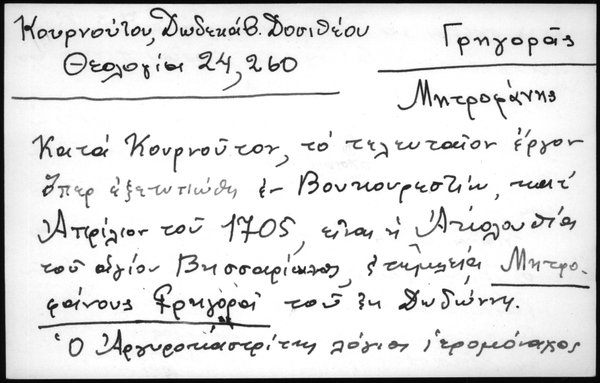 Κουρνούτου, Δωδεκάβ. Δοσιθέου
Θεολογία 24, 260
Γρηγοράς
Μητροφάνης
Κατά Κουρνοῦτον, τό τελευταῖον ἔργον
ὅπερ ἐξετυπώθη ἐν Βουκουρεστίῳ, κατ'
Ἀπρίλιον τοῦ 1705, εἶναι ἡ Ἀκολουθία
τοῦ ἁγίου Βησσαρίωνος, ἐπιμελείᾳ Μητρο-
φάνους Γρηγορᾶ τοῦ ἐκ Δωδώνης.
Ὁ Ἀργυροκαστρίτης λόγιος ἱερομόναχος